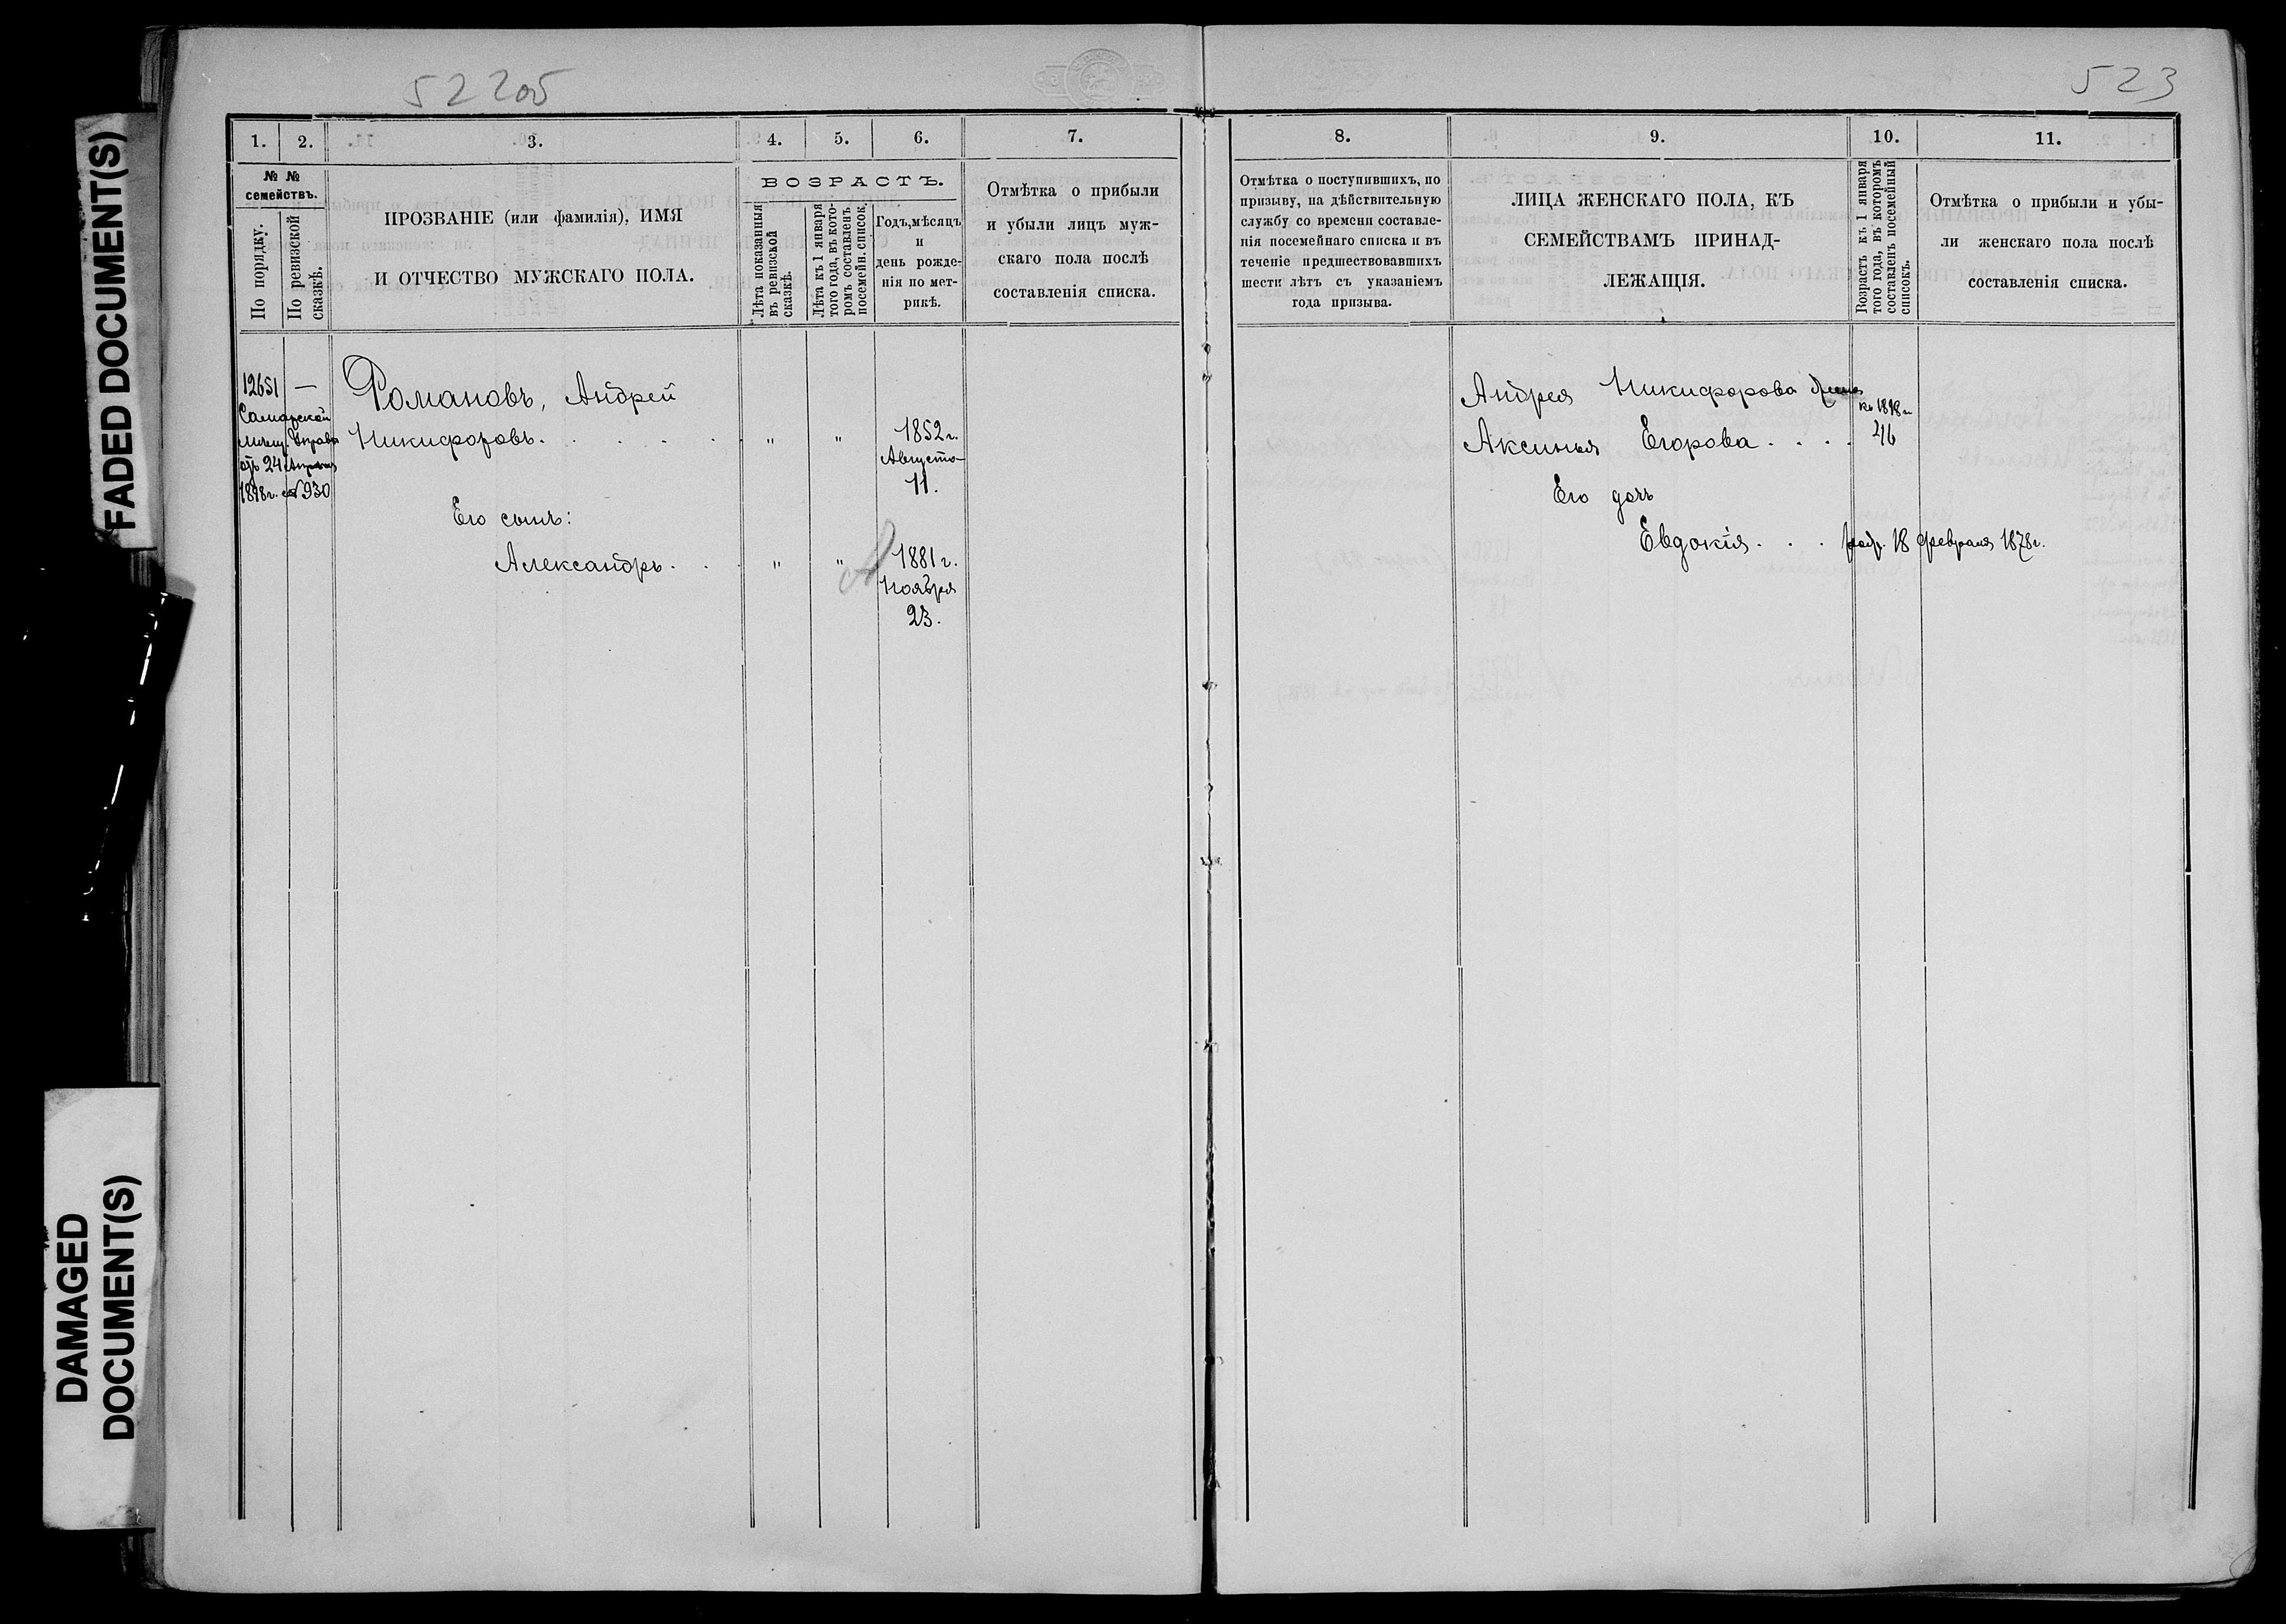 FADED DOCUMENT(S)
DAMAGED
DOCUMENT(S)
522об
1.
2.
3.
4.
5.
6.
7.
№ №
семействъ.
По порядку.
По ревизской
сказкѣ.
ПРОЗВАНІЕ (или фамилія), ИМЯ
И ОТЧЕСТВО МУЖСКАГО ПОЛА.
ВОЗРАСТЪ.
Лѣта показанныя
въ ревизской
сказкѣ.
Лѣта къ 1 января
того года, въ кото-
ромъ составленъ
посемейн. список.
Годъ, мѣсяцъ
и
день рожде-
нія по мет-
рикѣ.
Отмѣтка о прибыли
и убыли лицъ муж-
скаго пола послѣ
составленія списка.
12651 —
Самарской
мѣщ. Управы
отъ 24 Апрѣля
1898 г. № 930
Романовъ, Андрей
Никифоровъ. . . . . . " " 1852 г.
Августа
11.
Его сынъ:
Александръ. . . " " 1881 г.
Ноября
23.
523
8.
9.
10.
11.
Отмѣтка о поступившихъ, по
призыву, на дѣйствительную
службу со времени составле-
нія посемейнаго списка и въ
теченіе предшествовавшихъ
шести лѣтъ съ указаніемъ
года призыва.
ЛИЦА ЖЕНСКАГО ПОЛА, КЪ
СЕМЕЙСТВАМЪ ПРИНАД-
ЛЕЖАЩІЯ.
Возрастъ къ 1 января
того года, въ которомъ
составленъ посемейный
списокъ.
Отмѣтка о прибыли и убы-
ли женскаго пола послѣ
составленія списка.
Андрея Никифорова жена
къ 1898 г.
Аксинья Егорова. . . . 46
Его дочь
Евдокія. . . род. 18 февраля 1878 г.